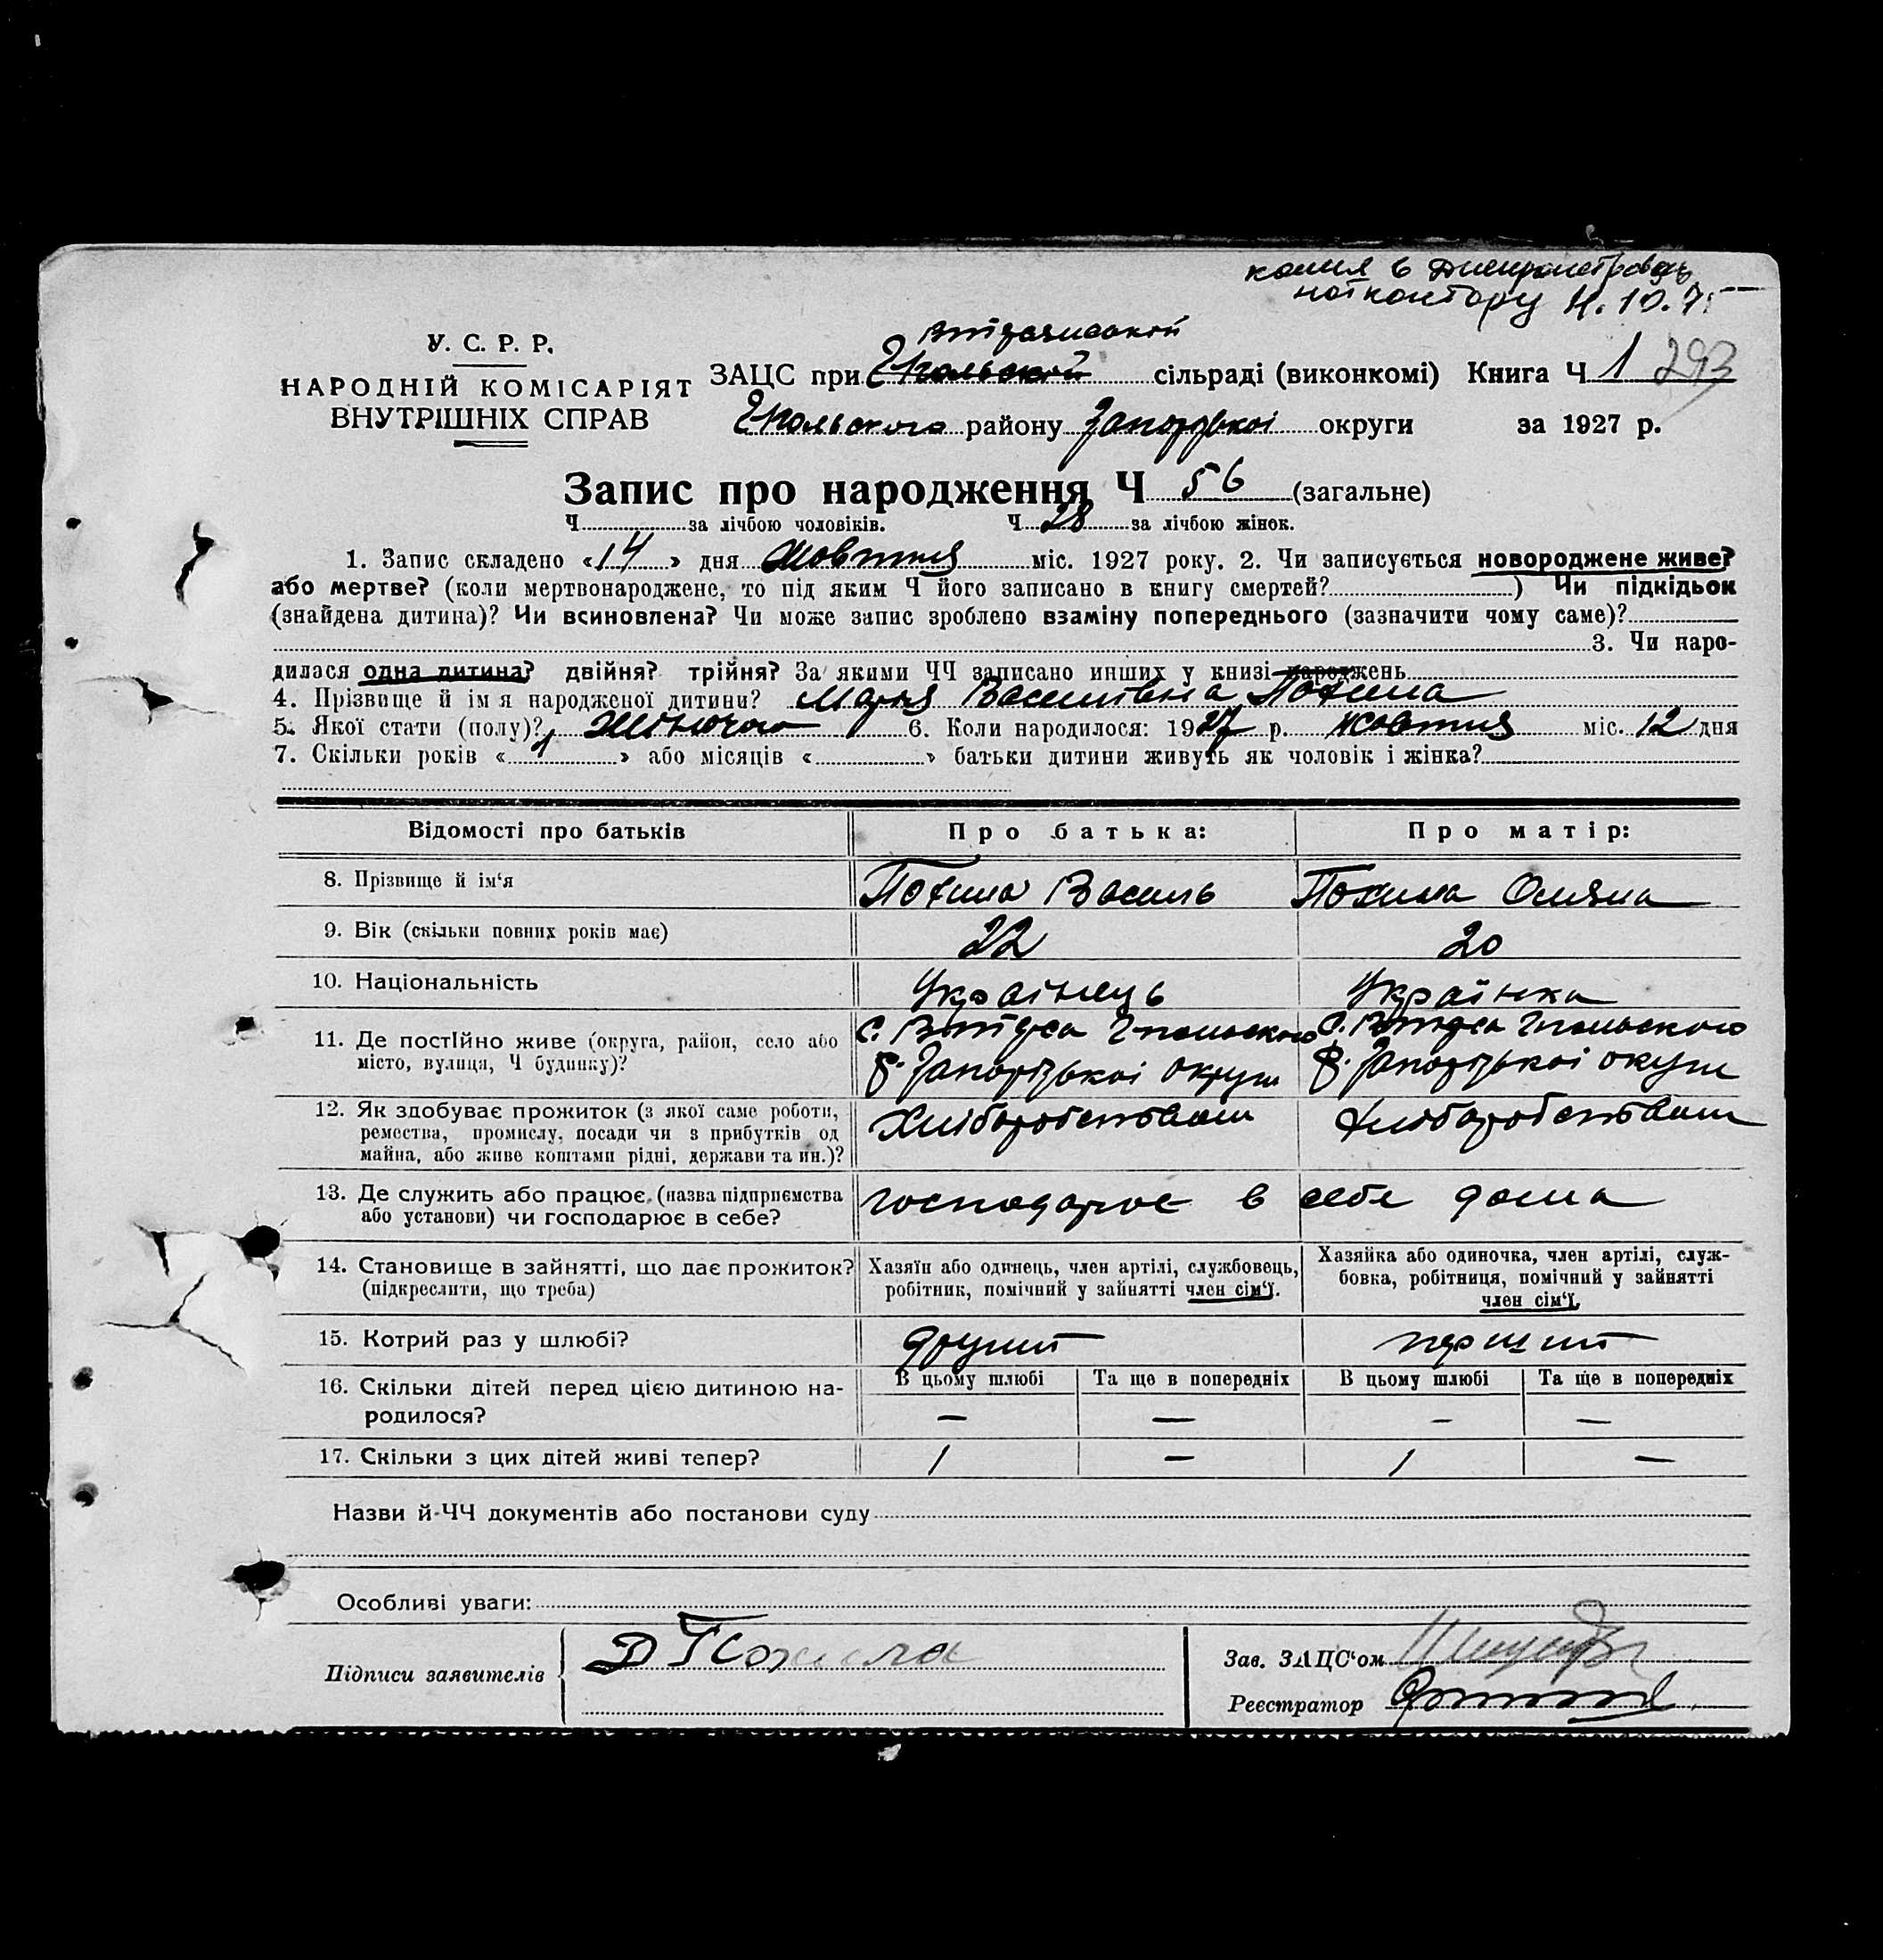 копия в Днепропетровскую
нотконтору 4.10.75
У. С. Р. Р.
НАРОДНІЙ КОМІСАРІЯТ
ВНУТРІШНІХ СПРАВ
ЗАЦС при сільраді (виконкомі) Книга Ч 1 293
району Запорізької округи за 1927 р.
Запис про народження Ч 56 (загальне)
Ч за лічбою чоловіків. Ч 28 за лічбою жінок.
1. Запис складено «14» дня Жовтня міс. 1927 року. 2. Чи записується новороджене живе?
або мертве? (коли мертвонароджене, то під яким Ч його записано в книгу смертей? ) Чи підкідьок
(знайдена дитина)? Чи всиновлена? Чи може запис зроблено взаміну попереднього (зазначити чому саме)?
3. Чи наро-
дилася одна дитина? двійня? трійня? За якими ЧЧ записано инших у книзі народжень
4. Прізвище й ім я народженої дитини? Марія Василівна Похила
5. Якої стати (полу)? Жіночого 6. Коли народилося: 1927 р. жовтня міс. 12 дня
7. Скільки років « 1 » або місяців « » батьки дитини живуть як чоловік і жінка?
Відомості про батьків Про батька: Про матір:
8. Прізвище й ім‘я Похила Василь Похила Оляна
9. Вік (скільки повних років має) 22 20
10. Національність Українець Українка
11. Де постійно живе (округа, район, село або
місто, вулиця, Ч будинку)?
р. Запорізької округи р. Запорізької округи
12. Як здобуває прожиток (з якої саме роботи,
ремества, промислу, посади чи з прибутків од
майна, або живе коштами рідні, держави та ин.)?
Хліборобством Хліборобством
13. Де служить або працює (назва підприємства
або установи) чи господарює в себе?
господарює в себе дома
14. Становище в зайнятті, що дає прожиток?
(підкреслити, що треба)
Хазяїн або одинець, член артілі, службовець,
робітник, помічний у зайнятті член сім‘ї.
Хазяйка або одиночка, член артілі, служ-
бовка, робітниця, помічний у зайнятті
член сім‘ї.
15. Котрий раз у шлюбі? другий перший
16. Скільки дітей перед цією дитиною на-
родилося?
В цьому шлюбі Та ще в попередніх В цьому шлюбі Та ще в попередніх
— — — —
17. Скільки з цих дітей живі тепер? 1 — 1 —
Назви й ЧЧ документів або постанови суду
Особливі уваги:
Підписи заявителів Д Похила
Зав. ЗАЦС‘ом
Реєстратор